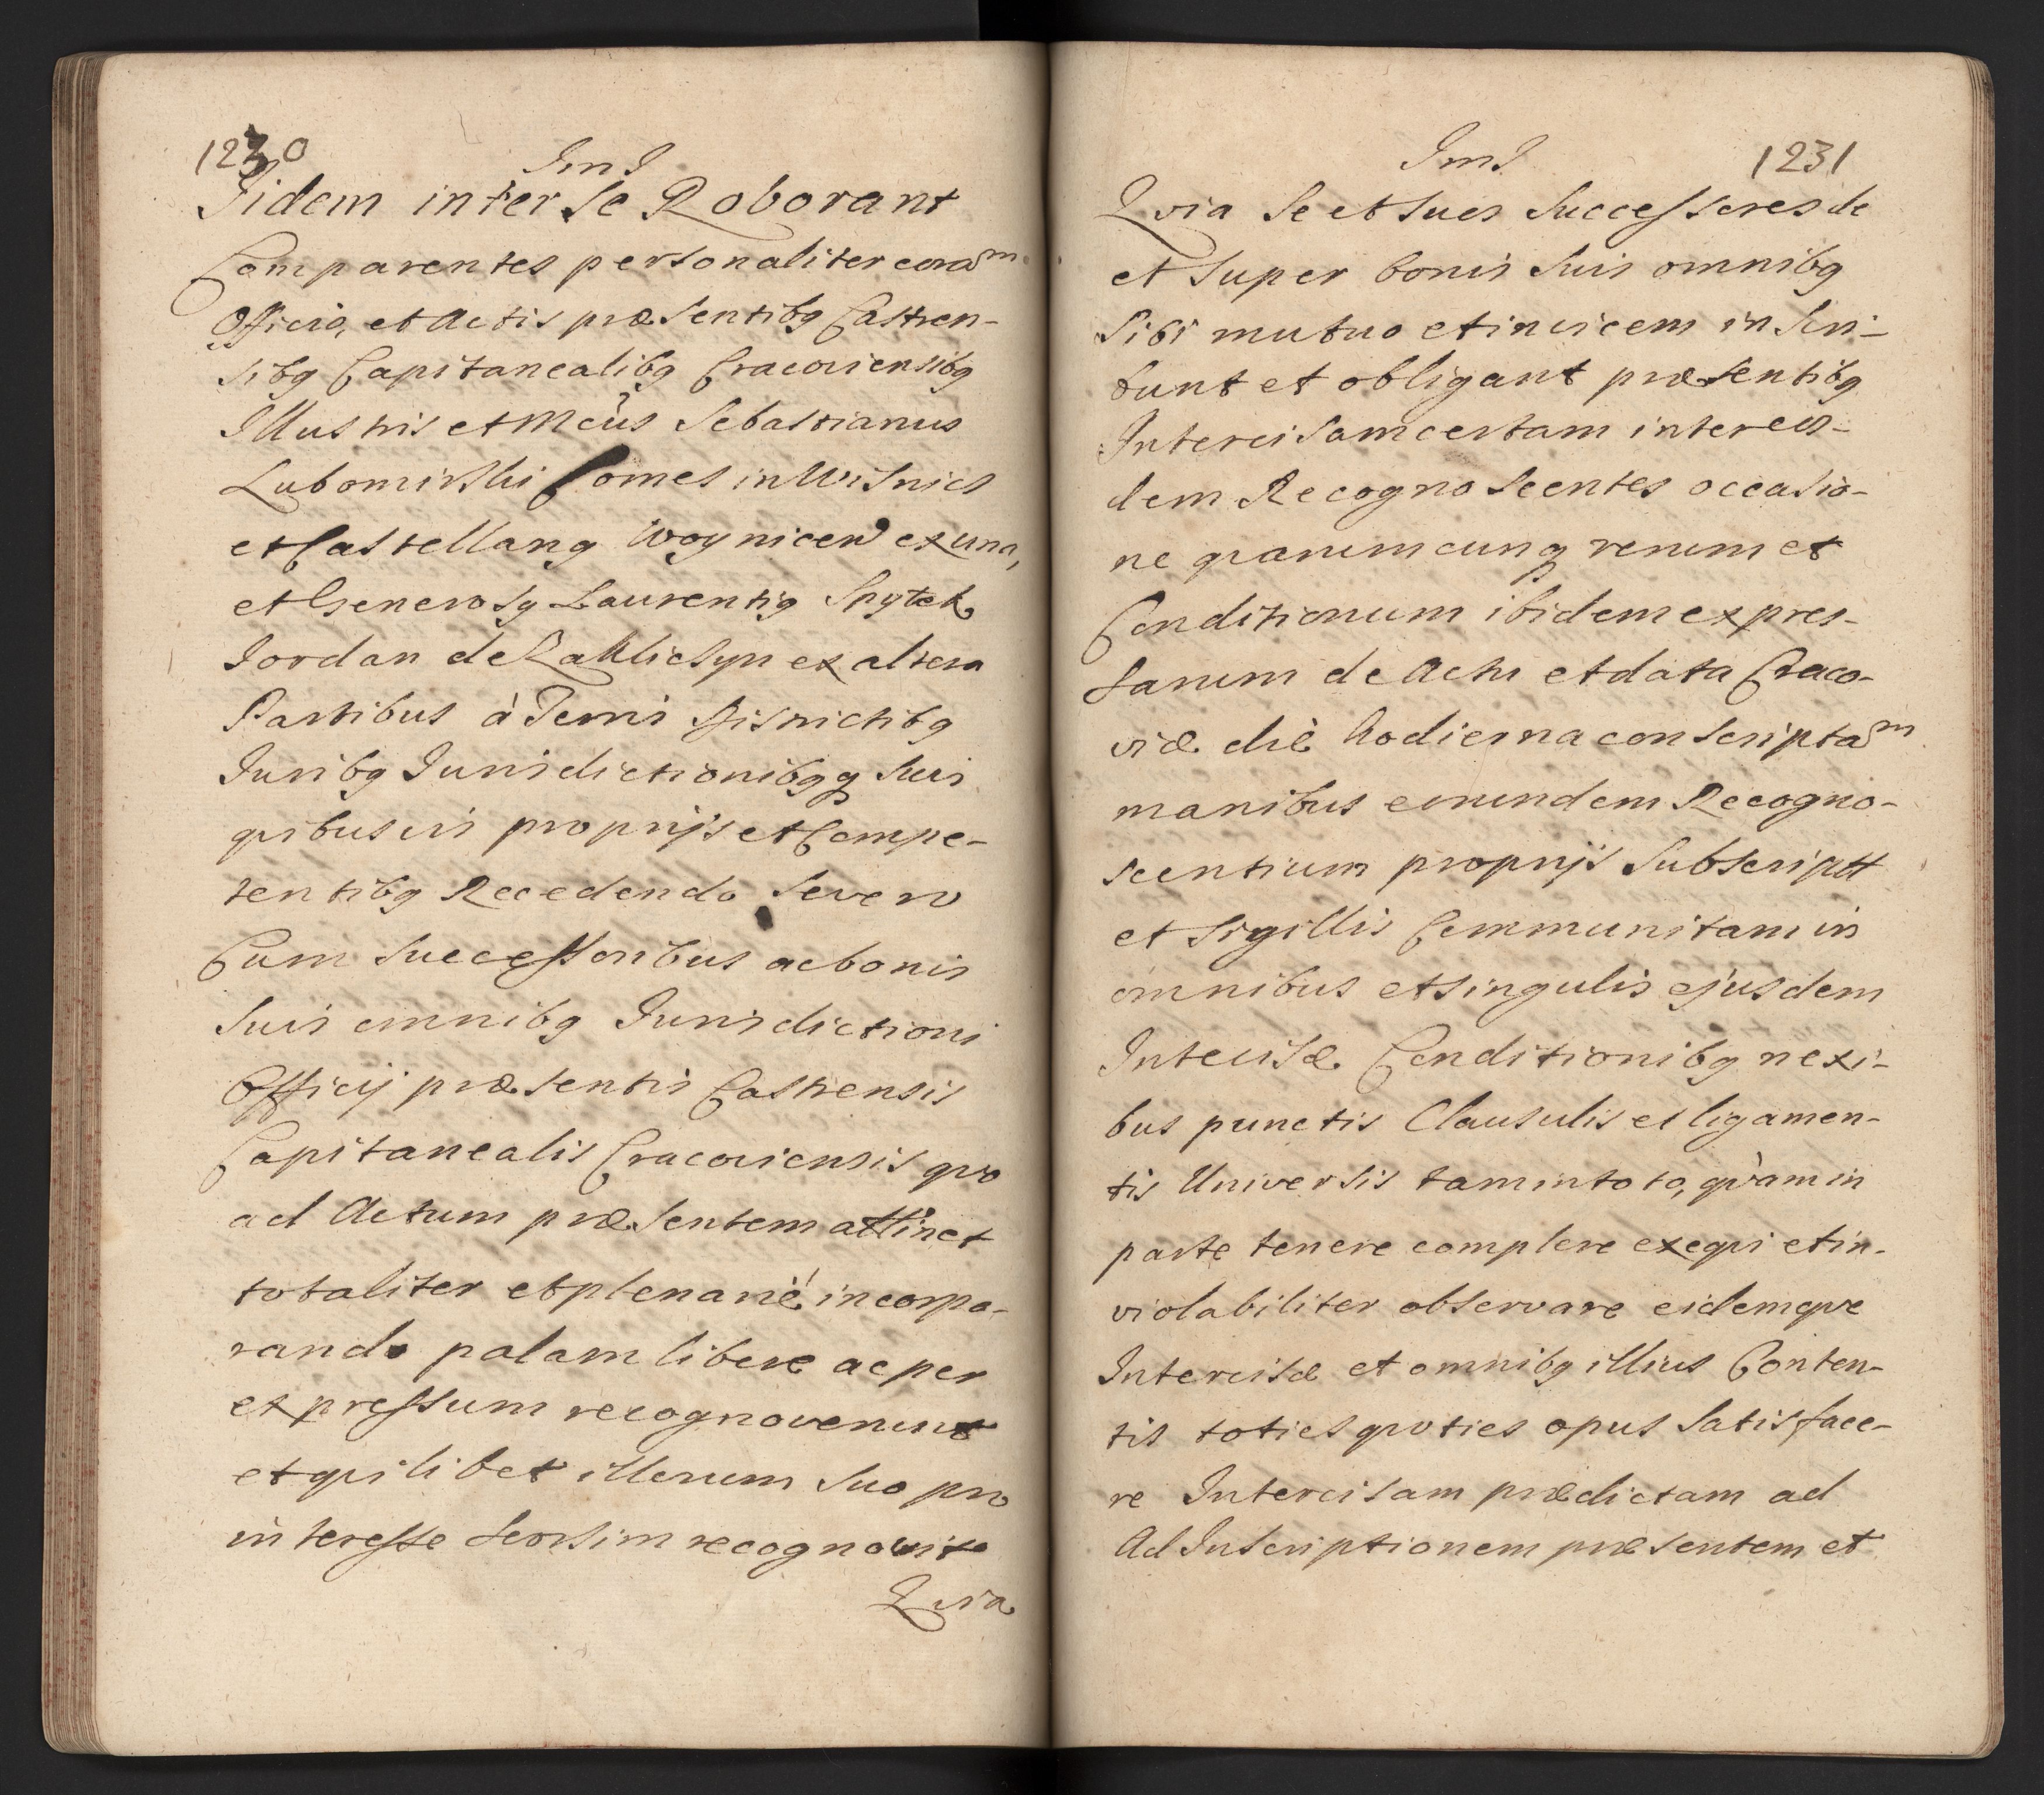 1230
JmJ
Iidem inter se Roborant
Comparentes personaliter coram
Officio, et Actis præsentibq Castren-
sibq Capitanealibq Cracoviensibq
Illustris et Mcus Sebastianus
Lubomirski Comes in Wisnicz
et Castellanq Woynicen ex una,
et Generosq Laurentiq Spytek
Jordan de Zakliczyn ex altera
Partibus à Terris Districtibq
Juribq Jurisdictionibqq suis
quibusvis proprijs et Compe-
tentibq Recedendo se vero
Cum Successoribus ac bonis
suis omnibq Jurisdictioni
Officij præsentis Castrensis
Capitanealis Cracoviensis quo
ad Actum præsentem attinet
totaliter et plenariè incorpo-
rando palam libere ac per
expressum recognoverunt
et quilibet illorum suo pro
interesse seorsim recognovit
Quia
JmJ
1231
Quia se et suos Successores de
et super bonis suis omnibq
sibi mutuo et invicem inscri-
bunt et obligant præsentibq
Intercisam certam inter eos-
dem Recognoscentes occasio-
ne quarumcunq rerum et
Conditionum ibidem expres-
sarum de Actu et data Craco-
viæ diè hodierna conscriptam
manibus eorundem Recogno-
scentium proprijs Subscriptt
et Sigillis Communitam in
omnibus et singulis ejusdem
Intercisæ Conditionibq nexi-
bus punctis Clausulis et ligamen-
tis Universis tam in toto, quàm in
parte tenere complere exequi et in-
violabiliter observare eidemque
Intercisæ et omnibq illius Conten-
tis toties quoties opus satisface-
re Intercisam prædictam ad
Ad Inscriptionem præsentem et